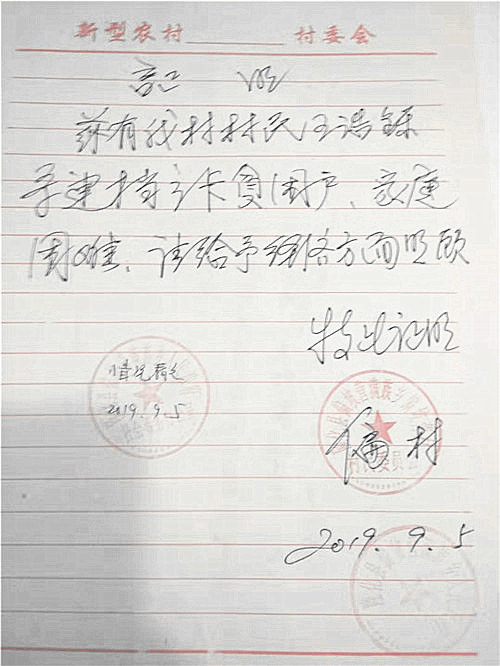 新型农村 村委会
证 明
兹有我村村民王浩铄
系建档立卡贫困户、家庭
困难、请给予到各方面照顾
特此证明
情况属实
2019.9.5
偏村
2019.9.5